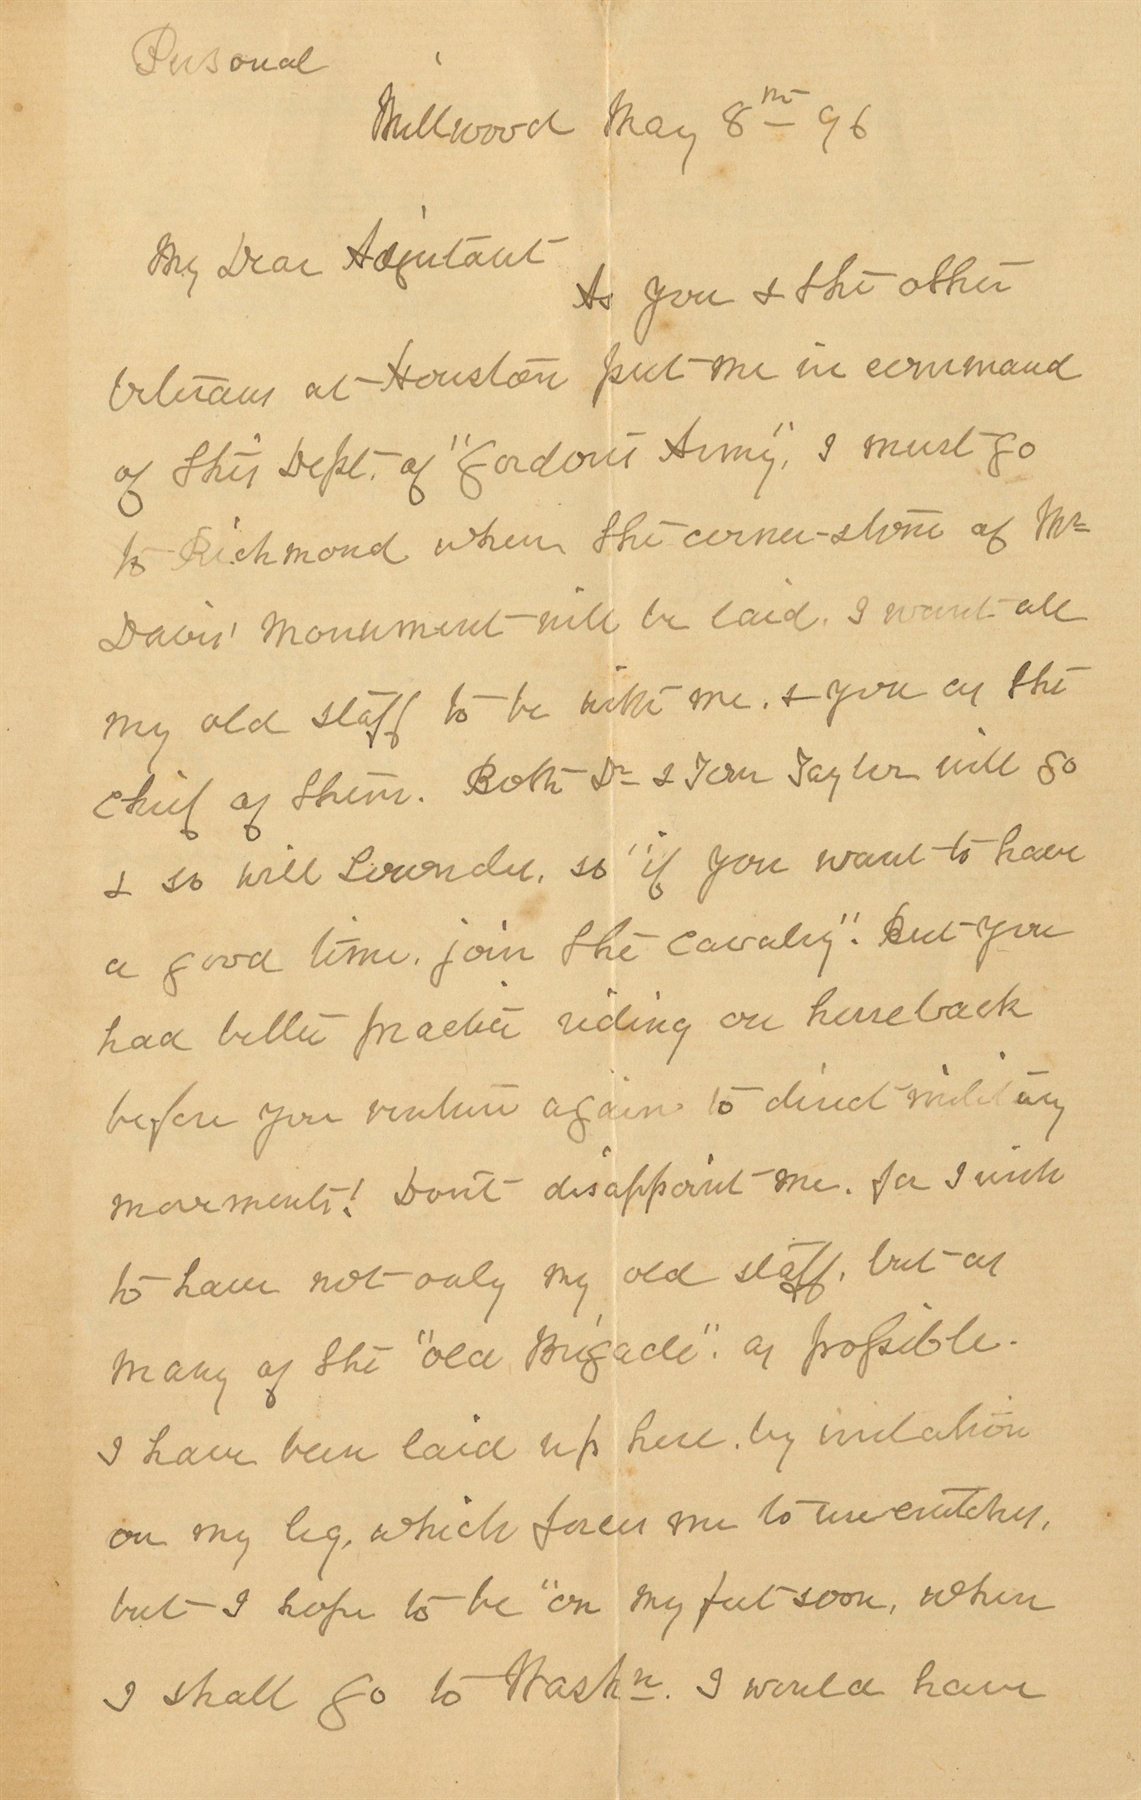 Personal
Millwood May 8th 96
My Dear Adjutant
As you & the other
veterans at Houston put me in command
of this Dept. of "Gordon's Army", I must go
to Richmond when the corner-stone of Mr
Davis' Monument will be laid. I want all
my old staff to be with me, & you as the
chief of them. Both Dr & Tom Taylor will go
& so will Lowndes, so "if you want to have
a good time, join the cavalry". But you
had better practice riding on horseback
before you venture again to direct military
movements! Don't disappoint me, for I wish
to have not only my old staff, but as
many of the "old Brigade", as possible.
I have been laid up here, by
on my leg, which forces me to use crutches,
but I hope to be "on my feet soon, when
I shall go to Washn. I would have